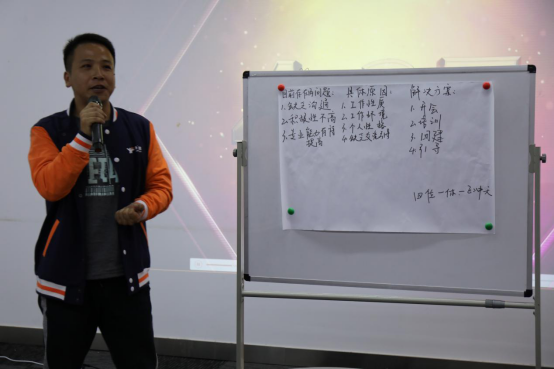 目前存在问题:
1.缺乏沟通
2.积极性不高
3.专业能力有待
提高
具体原因:
1.工作性质
2.工作环境
3.个人性格
4.缺乏交流
解决方案:
1.开会
2.培训
3.团建
4.引导